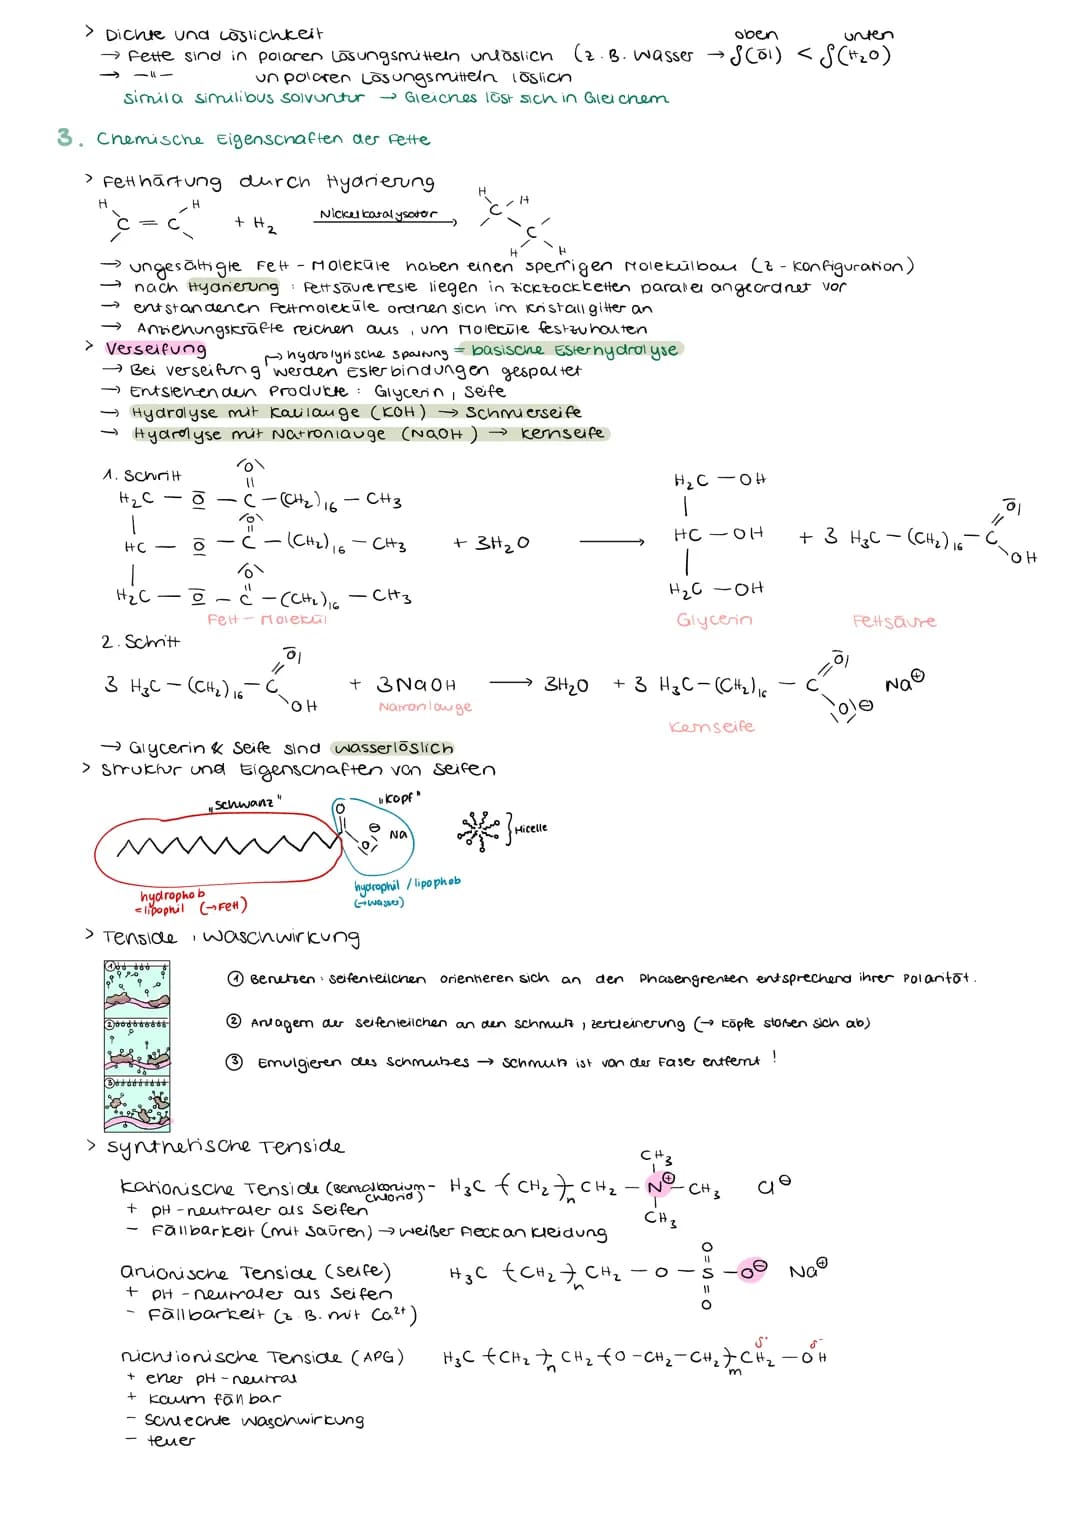 > Dichte und Löslichkeit
oben unten
→ Fette sind in polaren Lösungsmitteln unlöslich (z.B. Wasser → ρ(Öl) < ρ(H₂O)
→ -"- unpolaren Lösungsmitteln löslich
simila similibus solvuntur → Gleiches löst sich in Gleichem
3. Chemische Eigenschaften der Fette
> Fetthärtung durch Hydrierung
H H C = C + H₂ Nickelkatalysator H C H C H H
→ ungesättigte Fett-Moleküle haben einen sperrigen Molekülbau (Z-Konfiguration)
→ nach Hydrierung: Fettsäurereste liegen in Zickzackketten paralel angeordnet vor
→ entstandenen Fettmoleküle ordnen sich im Kristallgitter an
→ Anziehungskräfte reichen aus, um Moleküle festzuhalten
> Verseifung → hydrolytische Spaltung = basische Esterhydrolyse
→ Bei Verseifung werden Esterbindungen gespaltet
→ Entstehenden Produkte: Glycerin, Seife
→ Hydrolyse mit Kalilauge (KOH) → Schmierseife
→ Hydrolyse mit Natronlauge (NaOH) → Kernseife
1. Schritt
H₂C – O – C – (CH₂)₁₆ – CH₃ H₂C – OH
HC – O – C – (CH₂)₁₆ – CH₃ + 3H₂O → HC – OH + 3 H₃C – (CH₂)₁₆ – C O OH
H₂C – O – C – (CH₂)₁₆ – CH₃ H₂C – OH
Fett-Molekül Glycerin Fettsäure
2. Schritt
3 H₃C – (CH₂)₁₆ – C O OH + 3NaOH → 3H₂O + 3 H₃C – (CH₂)₁₆ – C O O⊖ Na⊕
Natronlauge Kernseife
→ Glycerin & Seife sind wasserlöslich
> Struktur und Eigenschaften von Seifen
„Schwanz" „Kopf"
O O ⊖ Na Micelle
hydrophob hydrophil / lipophob
= lipophil (→ Fett) (→ Wasser)
> Tenside, Waschwirkung
① Benetzen: Seifenteilchen orientieren sich an den Phasengrenzen entsprechend ihrer Polarität.
② Anlagern der Seifenteilchen an den Schmutz, Zerkleinerung (→ Köpfe stoßen sich ab)
③ Emulgieren des Schmutzes → Schmutz ist von der Faser entfernt!
> synthetische Tenside
kationische Tenside (Benzalkoniumchlorid) H₃C (CH₂)n CH₂ – N⊕ – CH₃ CH₃ CH₃ Cl⊖
+ pH-neutraler als Seifen
– Fällbarkeit (mit Säuren) → weißer Fleck an Kleidung
anionische Tenside (Seife) H₃C (CH₂)n CH₂ – O – S – O⊖ Na⊕ O O
+ pH-neutraler als Seifen
– Fällbarkeit (z.B. mit Ca²⁺)
nichtionische Tenside (APG) H₃C (CH₂)n CH₂ (O – CH₂ – CH₂)m CH₂ – OH δ⁺ δ⁻
+ eher pH-neutral
+ kaum fällbar
– schlechte Waschwirkung
– teuer